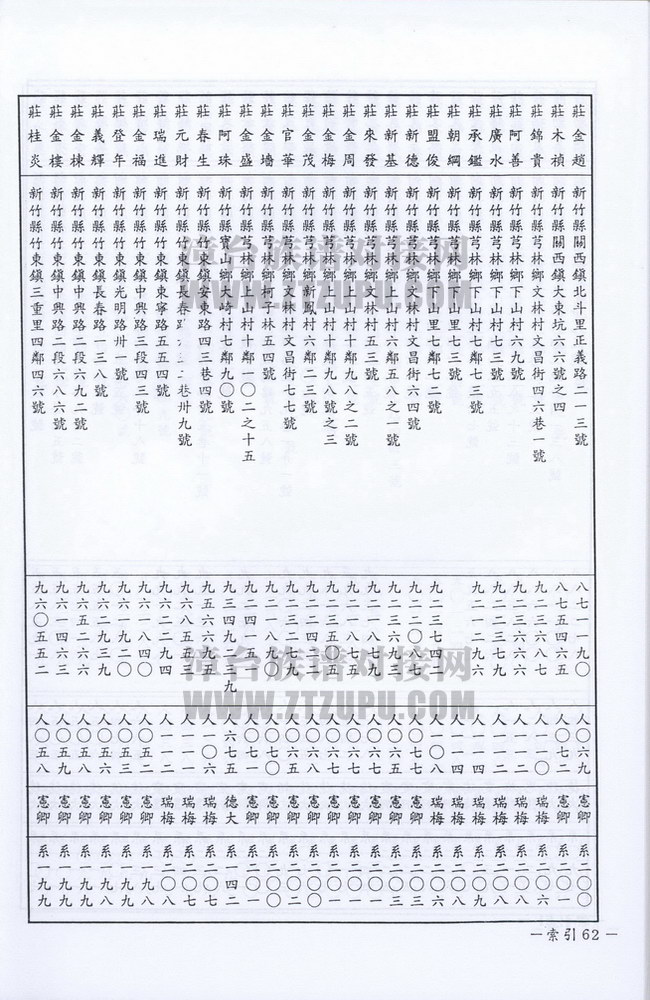 莊金趙 新竹縣關西鎮北斗里正義路二一三號 八七一一九〇 人〇六九 憲卿 系二〇〇
莊木楨 新竹縣關西鎮大東坑六六號之四 八七五四六五 人〇七二 憲卿 系二〇一
莊錦貴 新竹縣芎林鄉文林村文昌街四六巷一號 九二三六八七 人一一〇 瑞梅 系二〇六
莊阿善 新竹縣芎林鄉下山村六九號 九二三六六六 人一一二 瑞梅 系二〇八
莊廣水 新竹縣芎林鄉下山村七三號 九二二三七六 人一一二 瑞梅 系二〇八
莊承鑑 新竹縣芎林鄉下山村七鄰七三號 九二一二九六 人一一四 瑞梅 系二〇九
莊朝綱 新竹縣芎林鄉下山里七三號 人一一四 瑞梅 系二〇九
莊盟俊 新竹縣芎林鄉下山里七鄰七二號 九二三七四二 人一〇八 瑞梅 系二〇六
莊新德 新竹縣芎林鄉文林村文昌街六四號 九二二〇八七 人〇七七 憲卿 系二〇三
莊新基 新竹縣芎林鄉上山村六鄰五八之一號 九二三六九八 人〇七七 憲卿 系二〇三
莊來發 新竹縣芎林鄉文林村五三號 九二一八七九 人〇六七 憲卿 系二〇一
莊金周 新竹縣芎林鄉上山村十鄰九八之二號 九二一八七五 人〇六七 憲卿 系二〇一
莊金梅 新竹縣芎林鄉上山村十鄰九八號之三 九二三五〇五 人〇六七 憲卿 系二〇一
莊金茂 新竹縣芎林鄉新鳳村六鄰二三號 九二二四四五 人〇六八 憲卿 系二〇二
莊官華 新竹縣芎林鄉文林村文昌街七七號 九三二二七九 人〇六五 憲卿 系二〇〇
莊金墻 新竹縣芎林鄉柯子林五四號 九二一八九〇 人〇七〇 憲卿 系二〇一
莊金盛 新竹縣芎林鄉上山村十鄰一〇二之十五 九二四一一五 人〇七一 憲卿 系二〇一
莊阿珠 新竹縣寶山鄉大崎村七鄰九〇號 九三四九二一九 人六七五 德大 系一四二
莊春生 新竹縣竹東鎮安東路四三巷四號 九五六六九五 人一〇六 瑞梅 系二〇七
莊元財 新竹縣竹東鎮長春路六三二巷卅九號 九六八五五三 人一一一 瑞梅 系二〇七
莊瑞進 新竹縣竹東鎮東寧路五五四號 九六二二九四 人一一二 瑞梅 系二〇八
莊金福 新竹縣竹東鎮中興路三段四三號 九六一八四〇 人〇五二 憲卿 系一九八
莊登年 新竹縣竹東鎮光明路卅一號 九六一九二〇 人〇五三 憲卿 系一九八
莊義輝 新竹縣竹東鎮長春路一三八號 九六二九三九 人〇五六 憲卿 系一九九
莊金棟 新竹縣竹東鎮中興路二段六九二號 九六五二六六 人〇五八 憲卿 系一九九
莊金樓 新竹縣竹東鎮中興路二段六八六號 九六一四六三 人〇五九 憲卿 系一九九
莊桂炎 新竹縣竹東鎮三重里四鄰四六號 九六〇五五二 人〇五八 憲卿 系一九九
漳台族谱对接网
WWW.ZTZUPU.COM
漳台族谱对接网
WWW.ZTZUPU.COM
—索引62—